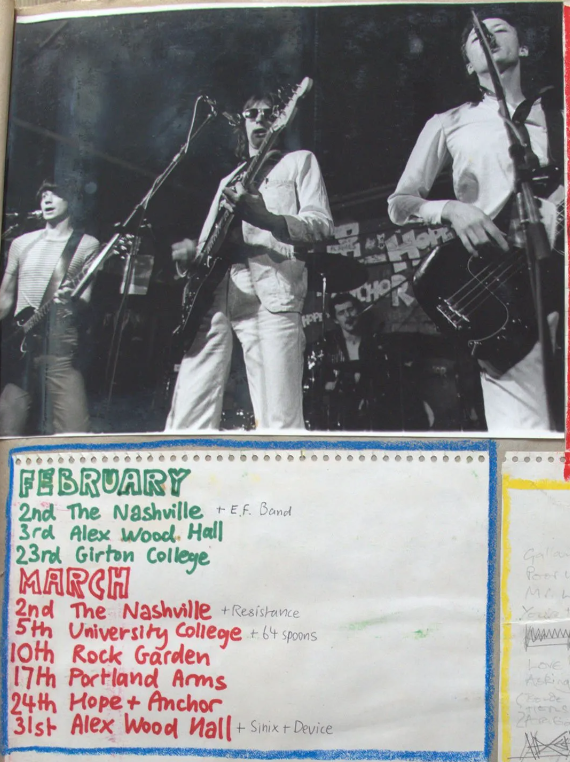 HOPE
FEBRUARY
2nd The Nashville + E.F. Band
3rd Alex Wood Hall
23rd Girton College
MARCH
2nd The Nashville + Resistance
5th University College + 64 spoons
10th Rock Garden
17th Portland Arms
24th Hope + Anchor
31st Alex Wood Hall + Sinix + Device
LOVE
Asking